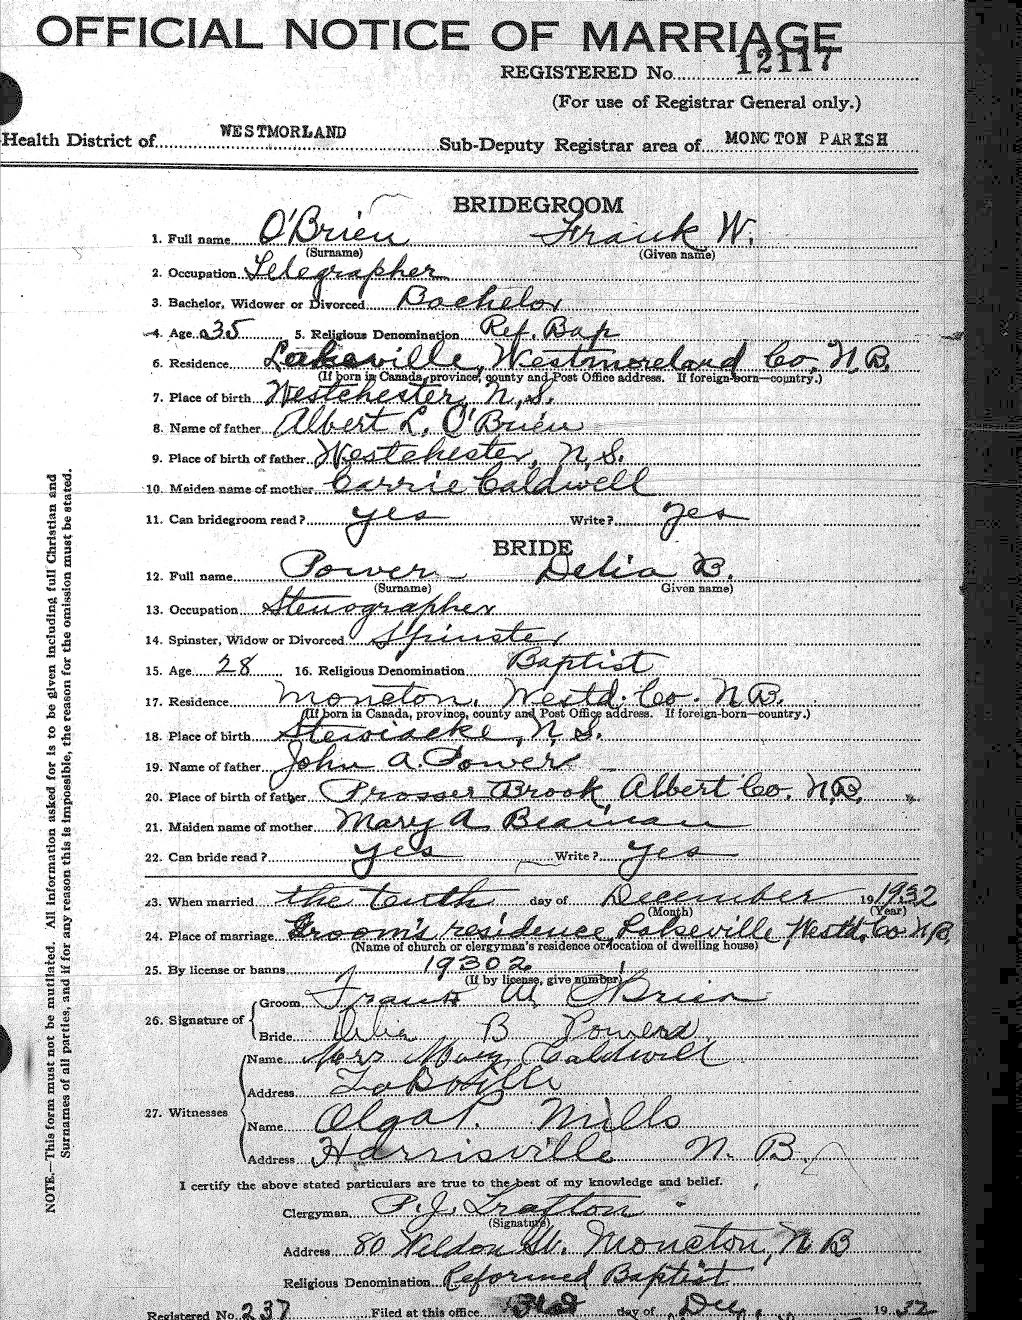 OFFICIAL NOTICE OF MARRIAGE
REGISTERED No. 12117
(For use of Registrar General only.)
Health District of WESTMORLAND Sub-Deputy Registrar area of MONCTON PARISH
BRIDEGROOM
1. Full name O'Brien Frank W.
(Surname) (Given name)
2. Occupation Telegrapher
3. Bachelor, Widower or Divorced Bachelor
4. Age 35 5. Religious Denomination Ref. Bap
6. Residence Lakeville, Westmoreland Co. N.B.
(If born in Canada, province, county and Post Office address. If foreign-born—country.)
7. Place of birth Westchester, N.S.
8. Name of father Albert L. O'Brien
9. Place of birth of father Westchester, N.S.
10. Maiden name of mother Carrie Caldwell
11. Can bridegroom read? yes Write? yes
BRIDE
12. Full name Power Delia B.
(Surname) (Given name)
13. Occupation Stenographer
14. Spinster, Widow or Divorced Spinster
15. Age 28 16. Religious Denomination Baptist
17. Residence Moncton, Westd. Co. N.B.
(If born in Canada, province, county and Post Office address. If foreign-born—country.)
18. Place of birth Stewiacke, N.S.
19. Name of father John A. Power
20. Place of birth of father Prosser Brook, Albert Co. N.B.
21. Maiden name of mother Mary A. Beaman
22. Can bride read? yes Write? yes
23. When married the tenth day of December 19 1932
(Month) (Year)
24. Place of marriage Groom's residence, Lakeville Westd. Co. N.B.
(Name of church or clergyman's residence or location of dwelling house)
25. By license or banns 19302
(If by license, give number)
26. Signature of Groom Frank W O'Brien
Bride Delia B Powers
27. Witnesses Name Mrs Mary Caldwell
Address Lakeville
Name Olga P. Mills
Address Harrisville N. B.
I certify the above stated particulars are true to the best of my knowledge and belief.
Clergyman P. J. Trafton
(Signature)
Address 80 Weldon St. Moncton, N B
Religious Denomination Reformed Baptist
Registered No. 237 Filed at this office day of Dec. 19 32
NOTE.—This form must not be mutilated. All information asked for is to be given including full Christian and
Surnames of all parties, and if for any reason this is impossible, the reason for the omission must be stated.